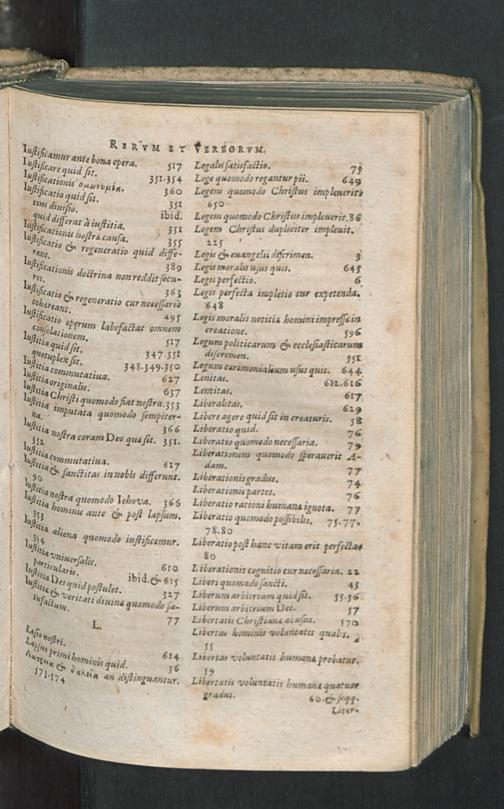 RERVM ET VERBORVM.
Iustificamur ante bona opera. 517
Iustificare quid sit. 351.354
Iustificationis 360
Iustificatio quid sit. 351
eius diuisio. ibid.
quid differat à iustitia. 351
Iustificationis nostræ causa. 355
Iustificatio & regeneratio quid diffe-
rant. 389
Iustificationis doctrina non reddit secu-
ros. 363
Iustificatio & regeneratio cur necessariò
cohæreant. 495
Iustificatio operum labefactat omnem
consolationem. 517
Iustitia quid sit. 347.351
quotuplex sit. 348.349.350
Iustitia commutatiua. 627
Iustitia originalis. 637
Iustitia Christi quomodo fiat nostra. 353
Iustitia imputata quomodo sempiter-
na. 366
Iustitia nostra coram Deo quæ sit. 351.
352
Iustitia commutatiua. 617
Iustitia & sanctitas in nobis differunt.
90
Iustitia nostra quomodo Iehova. 366
Iustitia hominis ante & post lapsum.
353
Iustitia aliena quomodo iustificemur.
354
Iustitia vniuersalis. 610
particularis. ibid. & 615
Iustitia Dei quid postulet. 327
Iustitiæ & veritati diuinæ quomodo sa-
tisfactum. 77
L.
Læsio nostri. 614
Lapsus primi hominis quid. 36
& an distinguantur.
573.574
Legalis satisfactio. 75
Lege quomodo regantur pii. 649
Legem quomodo Christus impleuerit.
650
Legem quomodo Christus impleuerit. 86
Legem Christus dupliciter impleuit.
225
Legis & euangelii discrimen. 3
Legis moralis usus quis. 645
Legis perfectio. 6
Legis perfecta impletio cur expetenda.
648
Legis moralis notitia homini impressa in
creatione. 596
Legum politicarum & ecclesiasticarum
discrimen. 551
Legum cærimonialium usus quis. 644
Lenitas. 612.616
Lentitas. 617
Liberalitas. 629
Liberè agere quid sit in creaturis. 58
Liberatio quid. 76
Liberatio quomodo necessaria. 79
Liberationem quomodo sperauerit A-
dam. 77
Liberationis gradus. 74
Liberationis partes. 76
Liberatio rationi humanæ ignota. 77
Liberatio quomodo possibilis. 75.77.
78.80
Liberatio post hanc vitam erit perfecta.
80
Liberationis cognitio cur necessaria. 22
Liberi quomodo sancti. 45
Liberum arbitrium quid sit. 55.56
Liberum arbitrium Dei. 57
Libertatis Christianæ abusus. 570
Libertas hominis voluntatis qualis.
55
Libertas voluntatis humanæ probatur.
59
Libertatis voluntatis humanæ quatuor
gradus. 60. & seqq.
Liter-